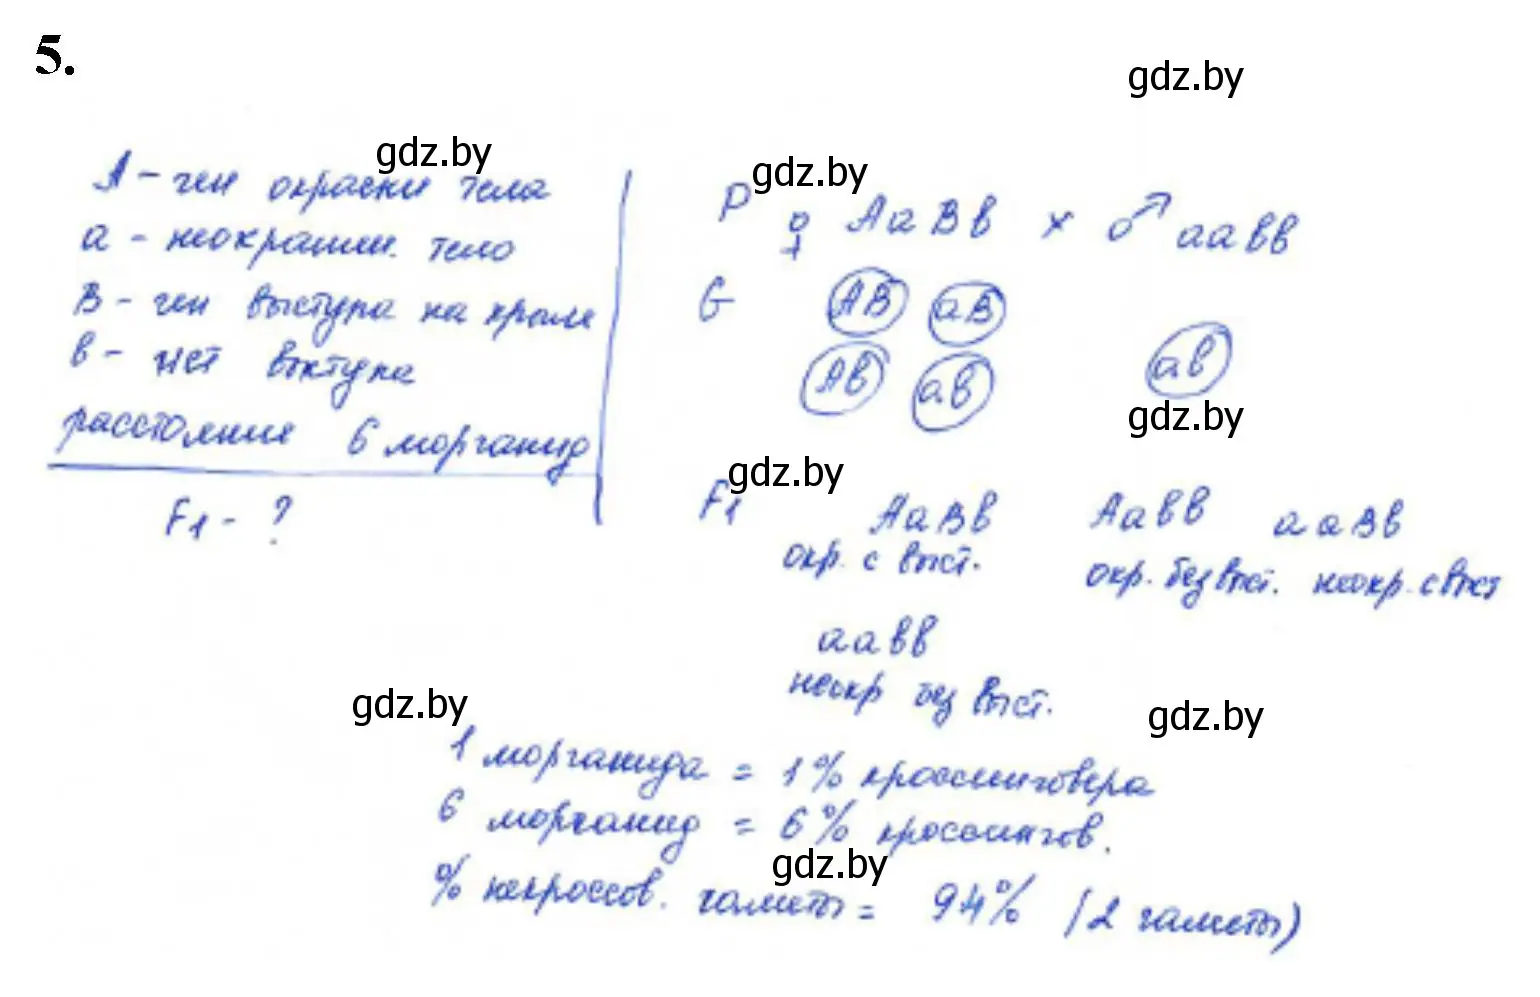 5.
gdz.by
gdz.by
gdz.by
A - ген окраски тела
a - неокрашен. тело
B - ген выступа на крыле
в - нет выступа
расстояние 6 морганид
F1 - ?
P ♀ AaBв x ♂ aaвв
G AB aB
Aв aв aв
gdz.by
gdz.by
F1 AaBв Aaвв aaBв
окр. с выст. окр. без выст. неокр. с выст
aaвв
неокр без выст.
gdz.by
gdz.by
1 морганида = 1% кроссинговера
6 морганид = 6% кроссингов.
gdz.by
% некроссов. гаметы = 94% (2 гаметы)